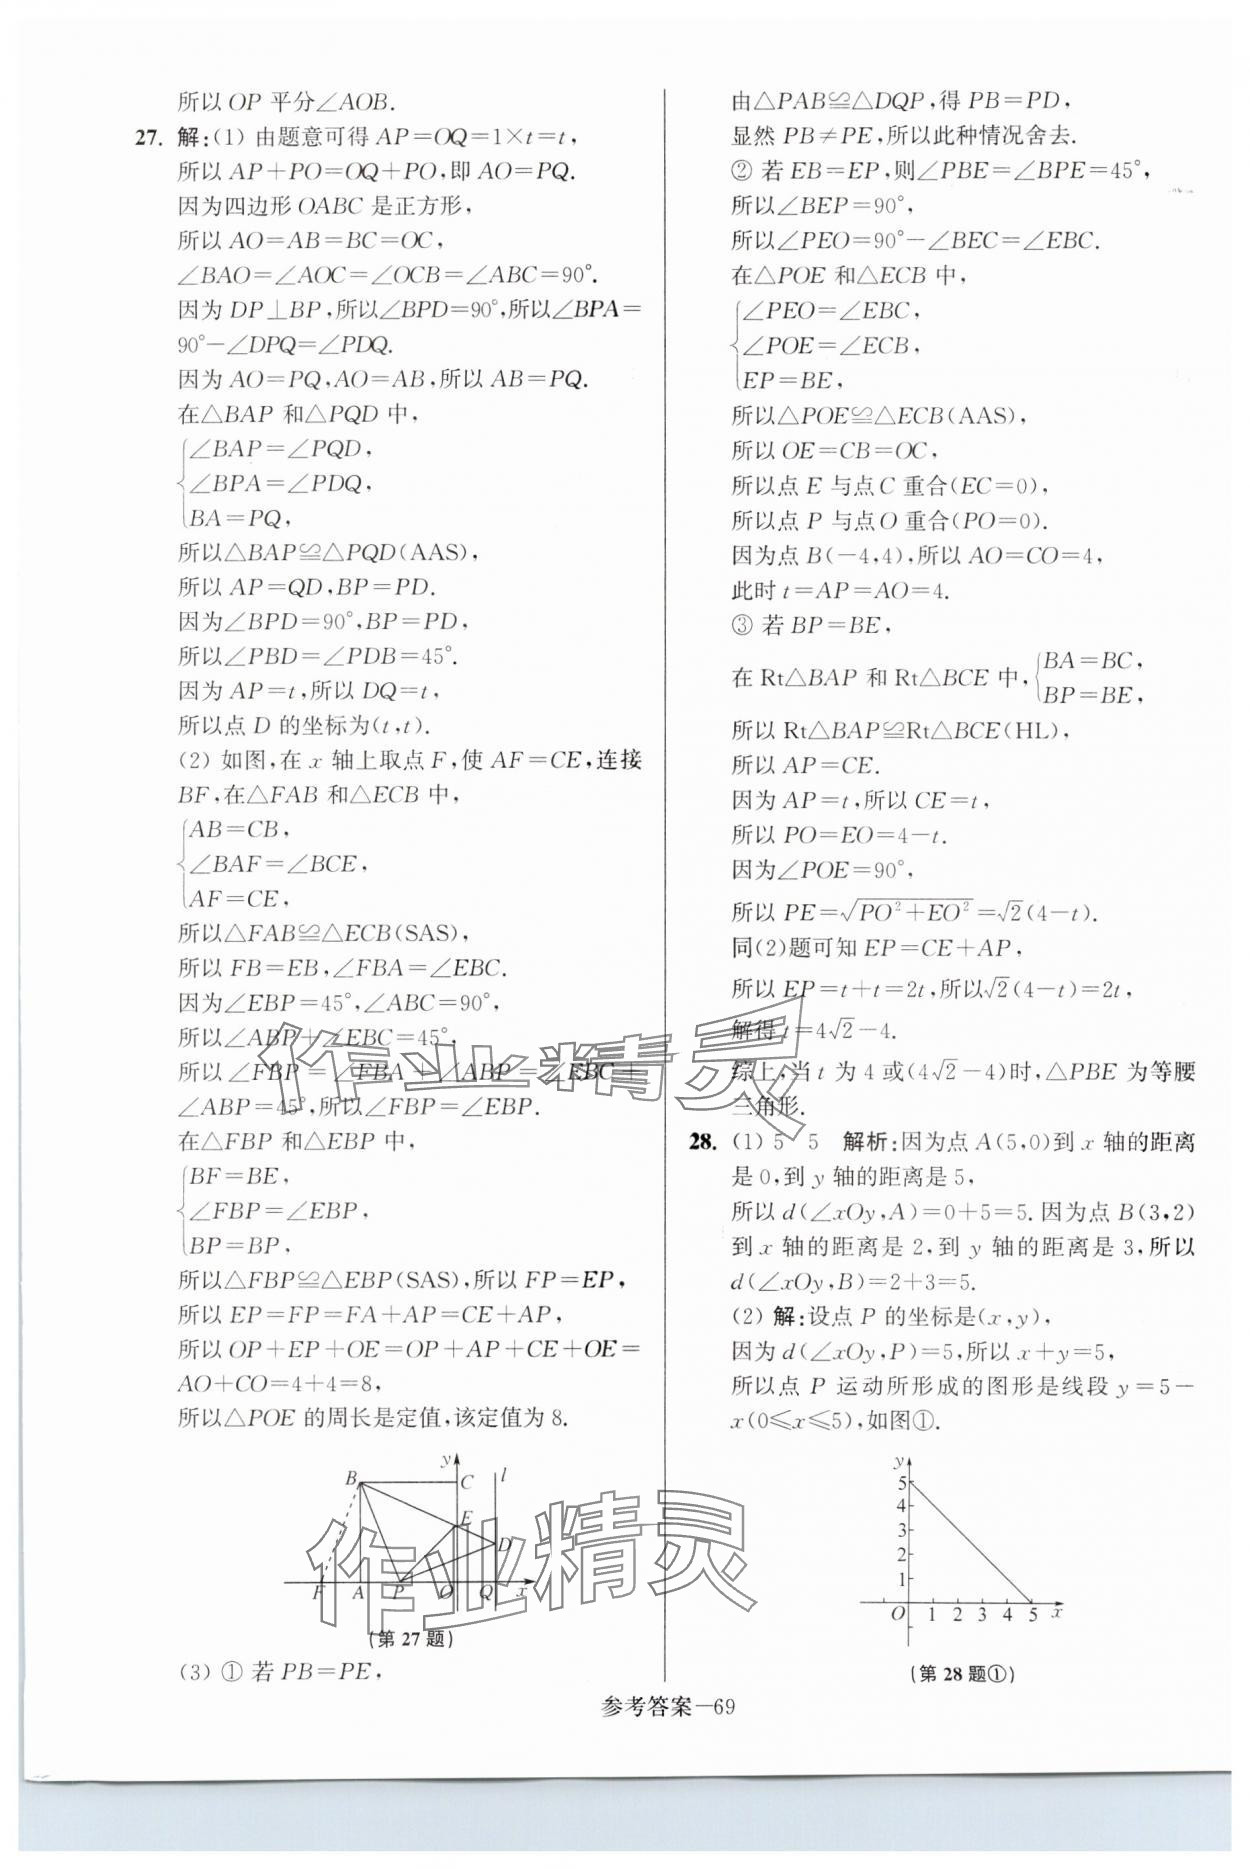 所以OP平分∠AOB.
27. 解:(1) 由题意可得AP=OQ=1×t=t,
所以AP+PO=OQ+PO,即AO=PQ.
因为四边形OABC是正方形,
所以AO=AB=BC=OC,
∠BAO=∠AOC=∠OCB=∠ABC=90°.
因为DP⊥BP,所以∠BPD=90°,所以∠BPA=
90°-∠DPQ=∠PDQ.
因为AO=PQ,AO=AB,所以AB=PQ.
在△BAP和△PQD中,
∠BAP=∠PQD,
∠BPA=∠PDQ,
BA=PQ,
所以△BAP≌△PQD(AAS),
所以AP=QD,BP=PD.
因为∠BPD=90°,BP=PD,
所以∠PBD=∠PDB=45°.
因为AP=t,所以DQ=t,
所以点D的坐标为(t,t).
(2) 如图,在x轴上取点F,使AF=CE,连接
BF,在△FAB和△ECB中,
AB=CB,
∠BAF=∠BCE,
AF=CE,
所以△FAB≌△ECB(SAS),
所以FB=EB,∠FBA=∠EBC.
因为∠EBP=45°,∠ABC=90°,
所以∠ABP+∠EBC=45°,
所以∠FBP=∠FBA+∠ABP=∠EBC+
∠ABP=45°,所以∠FBP=∠EBP.
在△FBP和△EBP中,
BF=BE,
∠FBP=∠EBP,
BP=BP,
所以△FBP≌△EBP(SAS),所以FP=EP,
所以EP=FP=FA+AP=CE+AP,
所以OP+EP+OE=OP+AP+CE+OE=
AO+CO=4+4=8,
所以△POE的周长是定值,该定值为8.
y
B C l
E
D
F A P O Q x
(第27题)
(3) ① 若PB=PE,
由△PAB≌△DQP,得PB=PD,
显然PB≠PE,所以此种情况舍去.
② 若EB=EP,则∠PBE=∠BPE=45°,
所以∠BEP=90°,
所以∠PEO=90°-∠BEC=∠EBC.
在△POE和△ECB中,
∠PEO=∠EBC,
∠POE=∠ECB,
EP=BE,
所以△POE≌△ECB(AAS),
所以OE=CB=OC,
所以点E与点C重合(EC=0),
所以点P与点O重合(PO=0).
因为点B(-4,4),所以AO=CO=4,
此时t=AP=AO=4.
③ 若BP=BE,
在Rt△BAP和Rt△BCE中,{BA=BC,
BP=BE,
所以Rt△BAP≌Rt△BCE(HL),
所以AP=CE.
因为AP=t,所以CE=t,
所以PO=EO=4-t.
因为∠POE=90°,
所以PE=√(PO²+EO²)=√2(4-t).
同(2)题可知EP=CE+AP,
所以EP=t+t=2t,所以√2(4-t)=2t,
解得t=4√2-4.
综上,当t为4或(4√2-4)时,△PBE为等腰
三角形.
28. (1) 5 5 解析:因为点A(5,0)到x轴的距离
是0,到y轴的距离是5,
所以d(∠xOy,A)=0+5=5.因为点B(3,2)
到x轴的距离是2,到y轴的距离是3,所以
d(∠xOy,B)=2+3=5.
(2) 解:设点P的坐标是(x,y),
因为d(∠xOy,P)=5,所以x+y=5,
所以点P运动所形成的图形是线段y=5-
x(0≤x≤5),如图①.
y
5
4
3
2
1
O 1 2 3 4 5 x
(第28题①)
参考答案—69
作业精灵
作业精灵